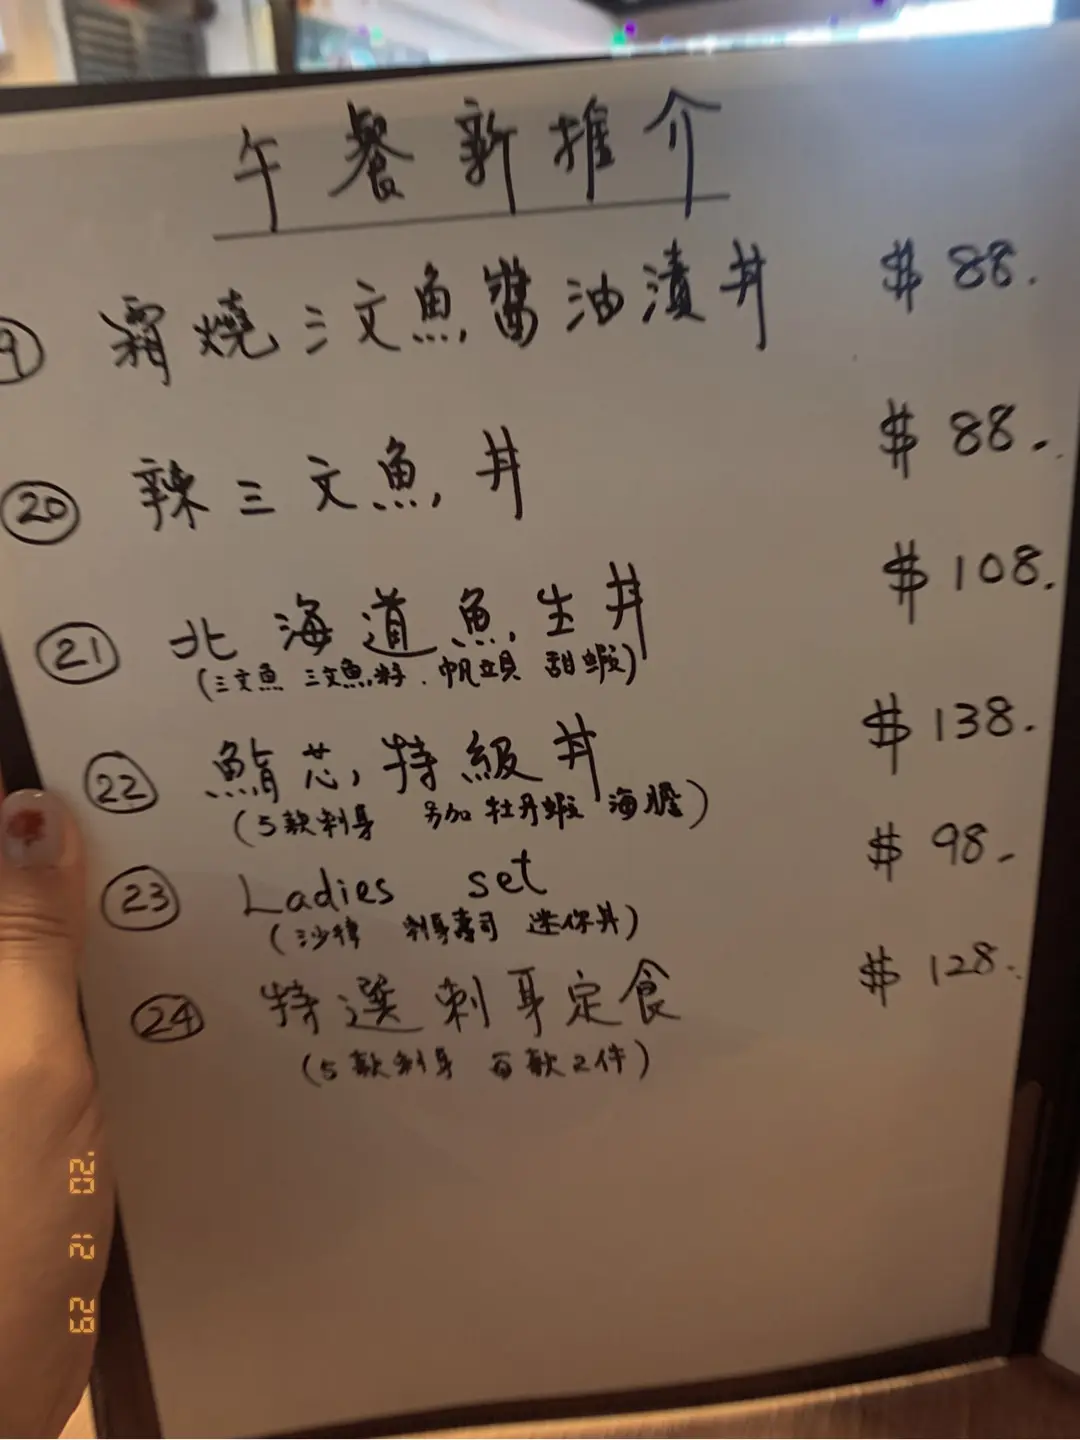 午餐新推介
19 霜燒三文魚醬油漬丼 $88.
20 辣三文魚丼 $88.
21 北海道魚生丼 $108.
(三文魚 三文魚籽．帆立貝 甜蝦)
22 鮨芯, 特級丼 $138.
(5款刺身 另加牡丹蝦 海膽)
23 Ladies set $98-
(沙律 刺身壽司 迷你丼)
24 特選刺身定食 $128.
(5款刺身 每款2件)
'20 12 29